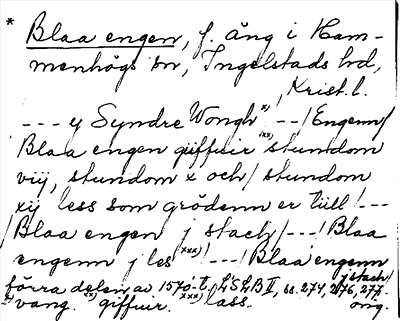 * Blaa engen, f. äng i Ham-
menhögs sn, Ingelstads hd,
Krist. l.
--- y Syndre Wongh x) --/Engenn/
Blaa engen giffuir xx) stundom
viij, stundom x och/stundom
xij less som grödenn er till/---
/Blaa engen j stach/---/Blaa
engenn j les xxx)/---/Blaa engenn
j stach/
förra delen av 1570-t. LSLB II, ss. 274, 276, 277.
x) vang. xx) giffuir. xxx) lass. äng.